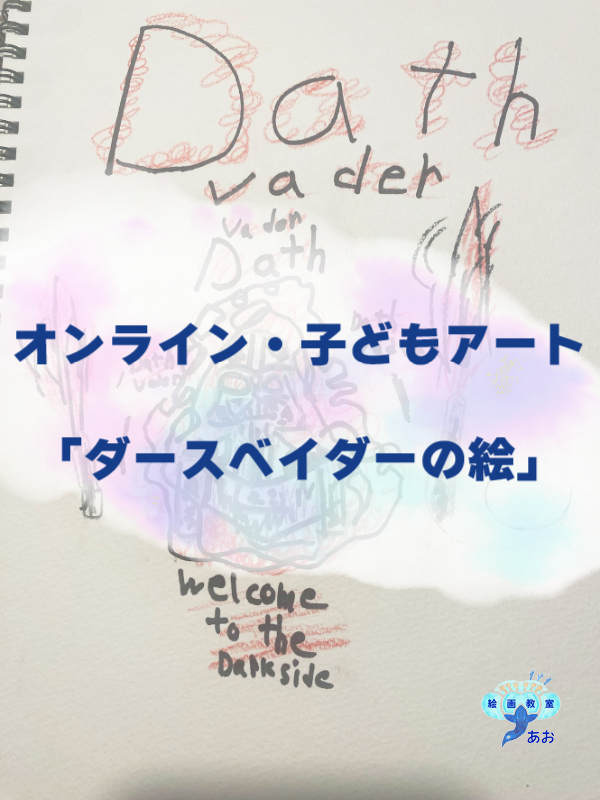 Dath
vader
vader
Dath
Dath
オンライン・子どもアート
Dath
vader
「ダースベイダーの絵」
welcome
to the
Darkside
絵画教室
あお